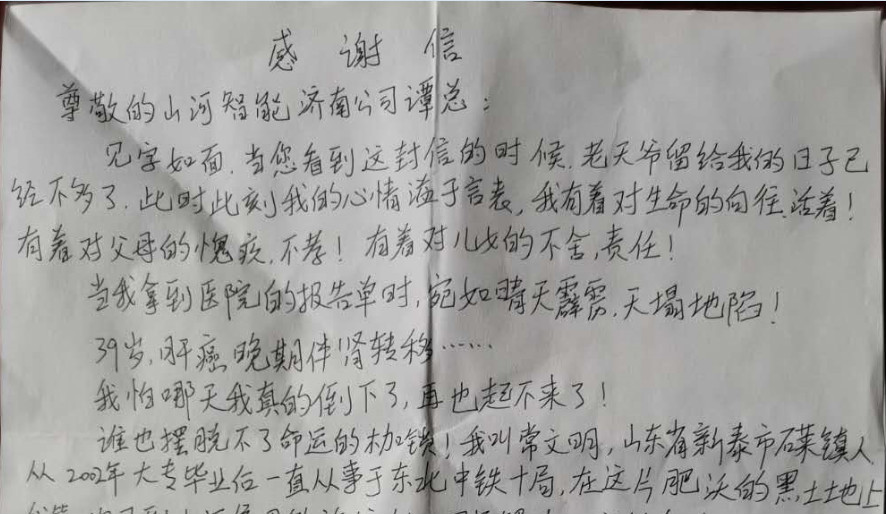 感谢信
尊敬的山河智能济南公司谭总：
见字如面.当您看到这封信的时候.老天爷留给我的日子已
经不多了.此时此刻我的心情溢于言表,我有着对生命的向往.活着！
有着对父母的愧疚,不孝！有着对儿女的不舍,责任！
当我拿到医院的报告单时,宛如晴天霹雳.天塌地陷！
39岁,肝癌晚期伴肾转移……
我怕哪天我真的倒下了,再也起不来了！
谁也摆脱不了命运的枷锁！我叫常文明,山东省新泰市镇人
从2002年大专毕业后一直从事于东北中铁十局,在这片肥沃的黑土地上